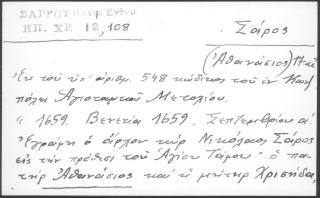 ΣΑΡΡΟΥ Πατρ. Ενθυμ.
ΗΠ. ΧΡ. 12,108
Σάρος
(Ἀθανάσιος)
Ἐκ τοῦ ὑπ' ἀριθμ. 548 κώδικος τοῦ ἐν Κων/
πόλει Ἁγιοταφιτικοῦ Μετοχίου.
« 1659. Βενετία 1659. Σεπτεμβρίου αʹ
Ἐγράφη ὁ ἄρχον κὺρ Νικόλαος Σάρος
εἰς τὴν πρόθεσι τοῦ Ἁγίου Τάφου· ὁ πα-
τὴρ Ἀθανάσιος καὶ ἡ μήτηρ Χρισηίδα,